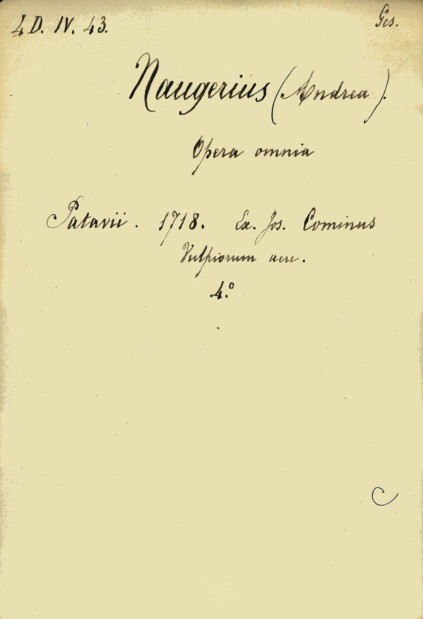 4 D. IV. 43. Ges.
Naugerius (Andrea).
Opera omnia
Patavii. 1718. Ex. Jos. Cominus
Vulpiorum aere.
4.º
C